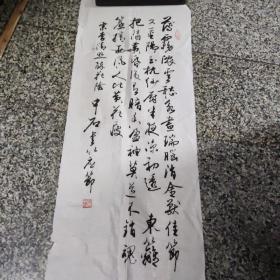 薄霧濃雲愁永晝瑞腦消金獸佳節
又重陽玉枕紗廚半夜涼初透 東籬
把酒黃昏後有暗香盈袖莫道不銷魂
簾捲西風人比黃花瘦
宋李清照醉花陰 中石書